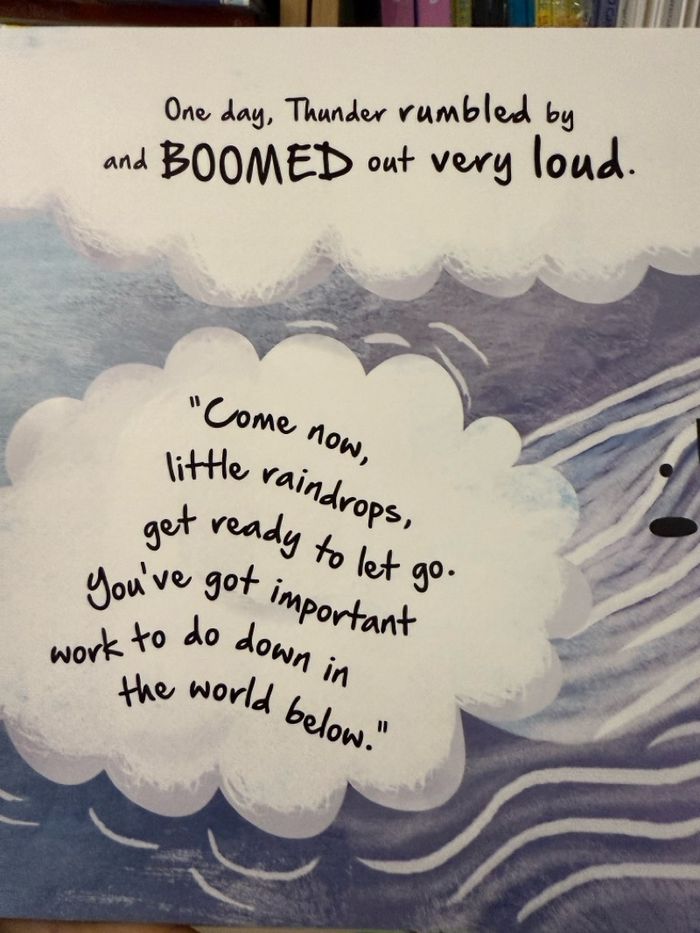 One day, Thunder rumbled by
and BOOMED out very loud.
"Come now,
little raindrops,
get ready to let go.
You've got important
work to do down in
the world below."